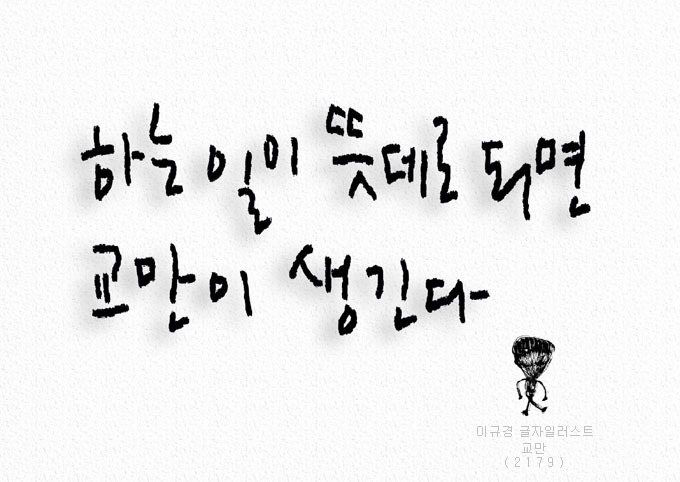 하는 일이 뜻데로 되면
교만이 생긴다
이규경 글자일러스트
교만
(2179)